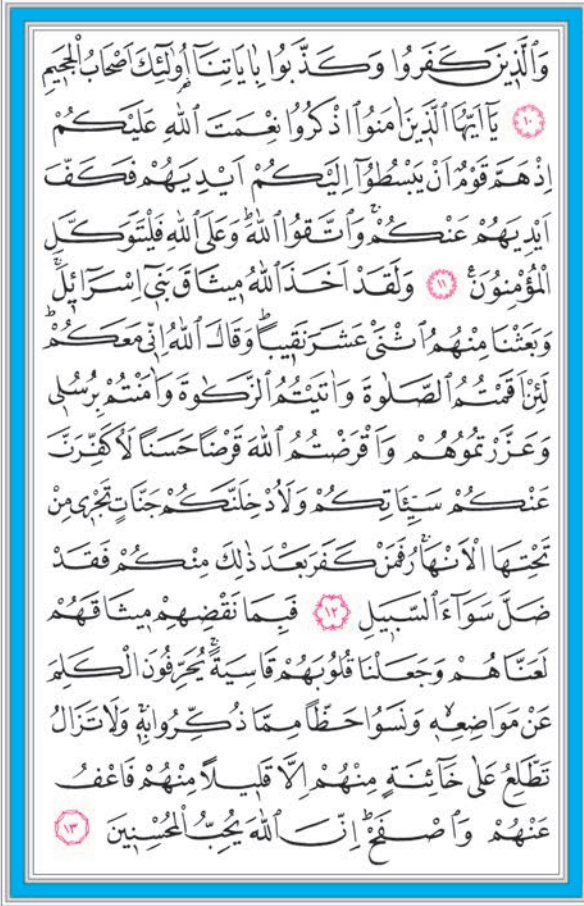 وَالَّذِينَ كَفَرُوا وَكَذَّبُوا بِاٰيَاتِنَٓا اُو۬لٰٓئِكَ اَصْحَابُ الْجَحِيمِ
﴿١٠﴾ يَٓا اَيُّهَا الَّذِينَ اٰمَنُوا اذْكُرُوا نِعْمَتَ اللّٰهِ عَلَيْكُمْ
اِذْ هَمَّ قَوْمٌ اَنْ يَبْسُطُٓوا اِلَيْكُمْ اَيْدِيَهُمْ فَكَفَّ
اَيْدِيَهُمْ عَنْكُمْۚ وَاتَّقُوا اللّٰهَۜ وَعَلَى اللّٰهِ فَلْيَتَوَكَّلِ
الْمُؤْمِنُونَ۟ ﴿١١﴾ وَلَقَدْ اَخَذَ اللّٰهُ مِيثَاقَ بَنِٓي اِسْرَٓائِلَۚ
وَبَعَثْنَا مِنْهُمُ اثْنَيْ عَشَرَ نَقِيبًاۜ وَقَالَ اللّٰهُ اِنِّي مَعَكُمْۜ
لَئِنْ اَقَمْتُمُ الصَّلٰوةَ وَاٰتَيْتُمُ الزَّكٰوةَ وَاٰمَنْتُمْ بِرُسُلِي
وَعَزَّرْتُمُوهُمْ وَاَقْرَضْتُمُ اللّٰهَ قَرْضًا حَسَنًا لَاُكَفِّرَنَّ
عَنْكُمْ سَيِّـَٔاتِكُمْ وَلَاُدْخِلَنَّكُمْ جَنَّاتٍ تَجْرِي مِنْ
تَحْتِهَا الْاَنْهَارُۚ فَمَنْ كَفَرَ بَعْدَ ذٰلِكَ مِنْكُمْ فَقَدْ
ضَلَّ سَوَٓاءَ السَّبِيلِ ﴿١٢﴾ فَبِمَا نَقْضِهِمْ مِيثَاقَهُمْ
لَعَنَّاهُمْ وَجَعَلْنَا قُلُوبَهُمْ قَاسِيَةًۚ يُحَرِّفُونَ الْكَلِمَ
عَنْ مَوَاضِعِهِۙ وَنَسُوا حَظًّا مِمَّا ذُكِّرُوا بِهِۚ وَلَا تَزَالُ
تَطَّلِعُ عَلٰى خَٓائِنَةٍ مِنْهُمْ اِلَّا قَلِيلًا مِنْهُمْ فَاعْفُ
عَنْهُمْ وَاصْفَحْۜ اِنَّ اللّٰهَ يُحِبُّ الْمُحْسِنِينَ ﴿١٣﴾